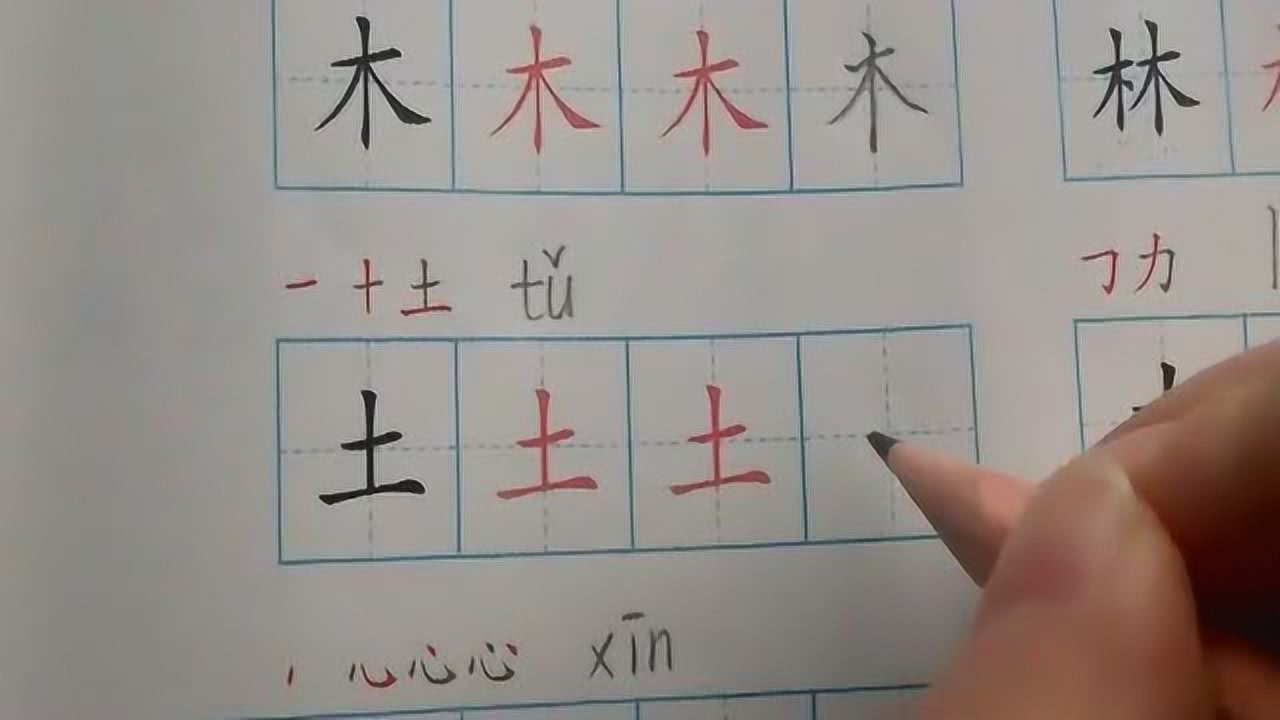 木 木 木 木 林
一 十 土 tǔ
㇆ 力
土 土 土
心 心 心 xīn